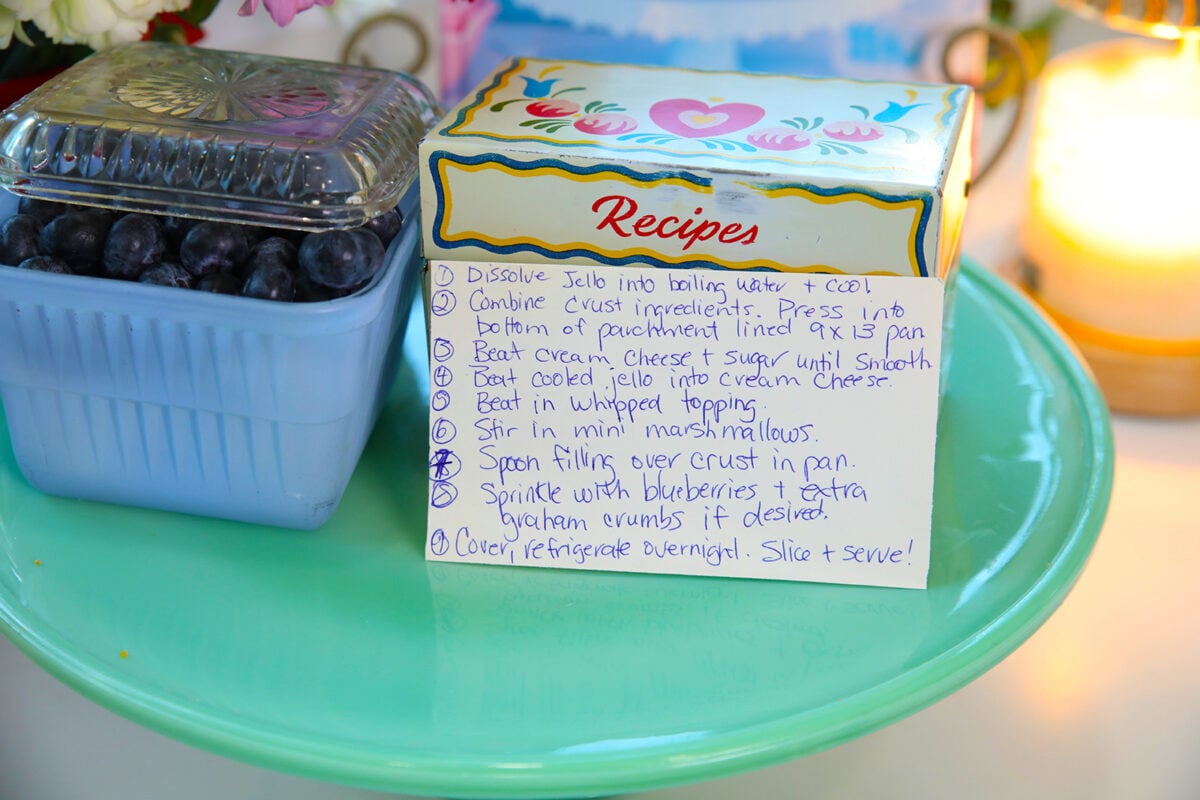 Recipes
① Dissolve Jello into boiling water + cool
② Combine crust ingredients. Press into
bottom of parchment lined 9x13 pan
③ Beat cream cheese + sugar until smooth
④ Beat cooled jello into cream cheese.
⑤ Beat in whipped topping.
⑥ Stir in mini marshmallows.
⑦ Spoon filling over crust in pan.
⑧ Sprinkle with blueberries + extra
graham crumbs if desired.
⑨ Cover, refrigerate overnight. Slice + serve!